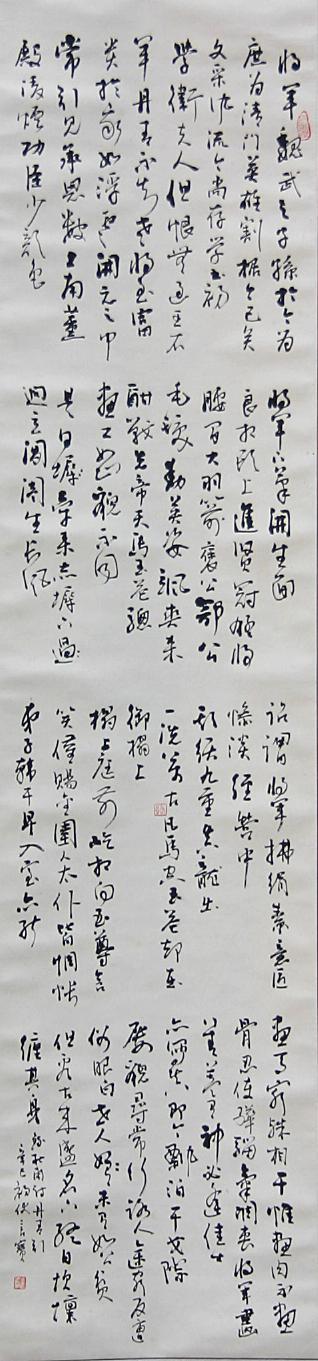 將軍魏武之子孫於今為
庶為清門英雄割據今已矣
文采風流今尚存學書初
學衛夫人但恨無過王右
軍丹青不知老將至富
貴於我如浮雲開元之中
常引見承恩數上南薰
殿凌煙功臣少顏色
將軍下筆開生面
良相頭上進賢冠猛將
腰間大羽箭褒公鄂公
毛髮動英姿颯爽來
酣戰先帝天馬玉花驄
畫工如山貌不同
是日牽來赤墀下
迥立閶闔生長風
詔謂將軍拂絹素意匠
慘淡經營中
斯須九重真龍出
一洗萬古凡馬空玉花卻在
御榻上
榻上庭前屹相向至尊含
笑催賜金圉人太仆皆惆悵
弟子韓干早入室亦能
畫馬窮殊相干惟畫肉不畫
骨忍使驊騮氣凋喪將軍畫
善蓋有神必逢佳士
亦寫真即今漂泊干戈際
屢貌尋常行路人途窮反遭
俗眼白世人未有如公貧
但看古來盛名下終日坎壈
纏其身 杜甫詩丹青引
辛巳